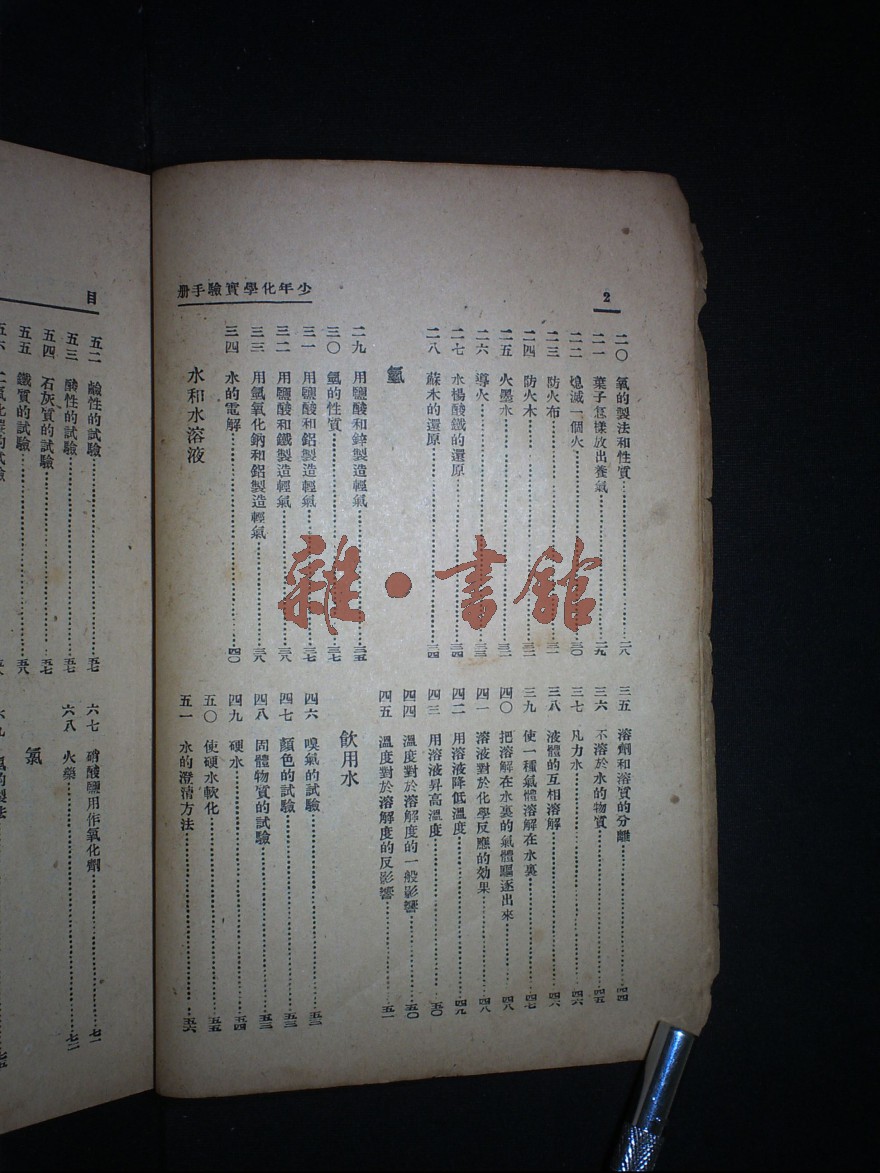 2
少年化學實驗手册
二〇 氧的製法和性質……二八
二一 葉子怎樣放出養氣……二九
二二 熄滅一個火……三〇
二三 防火布……三一
二四 防火木……三二
二五 火墨水……三二
二六 導火……三三
二七 水楊酸鐵的還原……三四
二八 蘇木的還原……三四
氫
二九 用鹽酸和鋅製造輕氣……三五
三〇 氫的性質……三七
三一 用鹽酸和鋁製造輕氣……三七
三二 用鹽酸和鐵製造輕氣……三八
三三 用氫氧化鈉和鋁製造輕氣……三八
三四 水的電解……四〇
水和水溶液
三五 溶劑和溶質的分離……四四
三六 不溶於水的物質……四五
三七 凡力水……四六
三八 液體的互相溶解……四六
三九 使一種氣體溶解在水裏……四七
四〇 把溶解在水裏的氣體驅逐出來……四八
四一 溶液對於化學反應的効果……四八
四二 用溶液降低溫度……四九
四三 用溶液昇高溫度……五〇
四四 溫度對於溶解度的一般影響……五〇
四五 溫度對於溶解度的反影響……五一
飲用水
四六 嗅氣的試驗……五二
四七 顏色的試驗……五三
四八 固體物質的試驗……五三
四九 硬水……五四
五〇 使硬水軟化……五五
五一 水的澄清方法……五六
目
五二 鹼性的試驗……五七
五三 酸性的試驗……五七
五四 石灰質的試驗……五七
五五 鐵質的試驗……五八
六七 硝酸鹽用作氧化劑……七一
六八 火藥……七二
氯
雜·書館